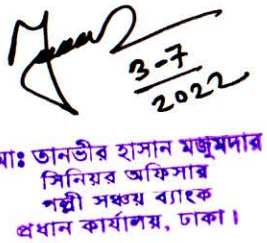 3-7
2022
মোঃ তানভীর হাসান মজুমদার
সিনিয়র অফিসার
পল্লী সঞ্চয় ব্যাংক
প্রধান কার্যালয়, ঢাকা।